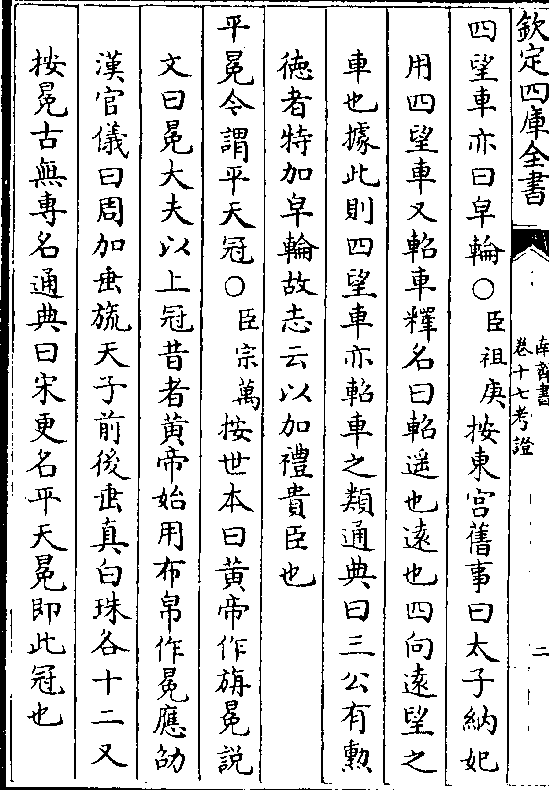 欽定四庫全書
南齊書
卷十七考證
二
四望車亦曰皁輪○臣祖庚按東宮舊事曰太子納妃
用四望車又軺車釋名曰軺遥也遠也四向遠望之
車也據此則四望車亦軺車之類通典曰三公有勲
徳者特加皁輪故志云以加禮貴臣也
平冕今謂平天冠○臣宗萬按世本曰黄帝作旃冕説
文曰冕大夫以上冠昔者黄帝始用布帛作冕應劭
漢官儀曰周加垂旒天子前後垂真白珠各十二又
按冕古無專名通典曰宋更名平天冕即此冠也